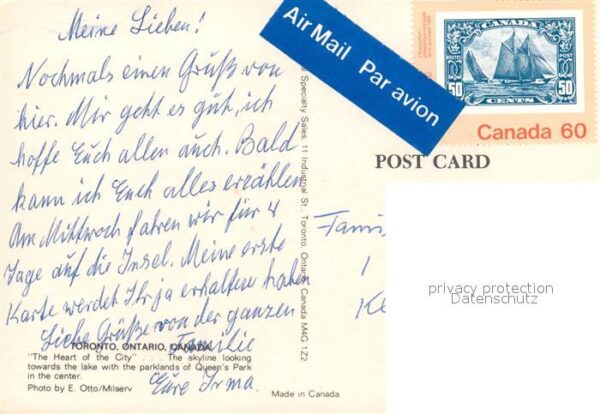 Meine Lieben!
Nochmals einen Grüß von
hier. Mir geht es güt, ich
hoffe Euch allen auch. Bald
kann ich Euch alles erzählen
Am Mittwoch fahren wir für 4
Tage auf die Insel. Meine erste
Karte werdet Ihr ja erhalten haben
Liebe Grüße von der ganzen
Familie
Eure Irma.
TORONTO, ONTARIO, CANADA
"The Heart of the City" . . . The skyline looking
towards the lake with the parklands of Queen's Park
in the center.
Photo by E. Otto/Milserv
Made in Canada
Specialty Sales, 11 Industrial St., Toronto, Ontario, Canada M4G 1Z2
Air Mail Par avion
CANADA
POSTES POSTAGE
50 50
CENTS
Canada 60
POST CARD
1
privacy protection
Datenschutz